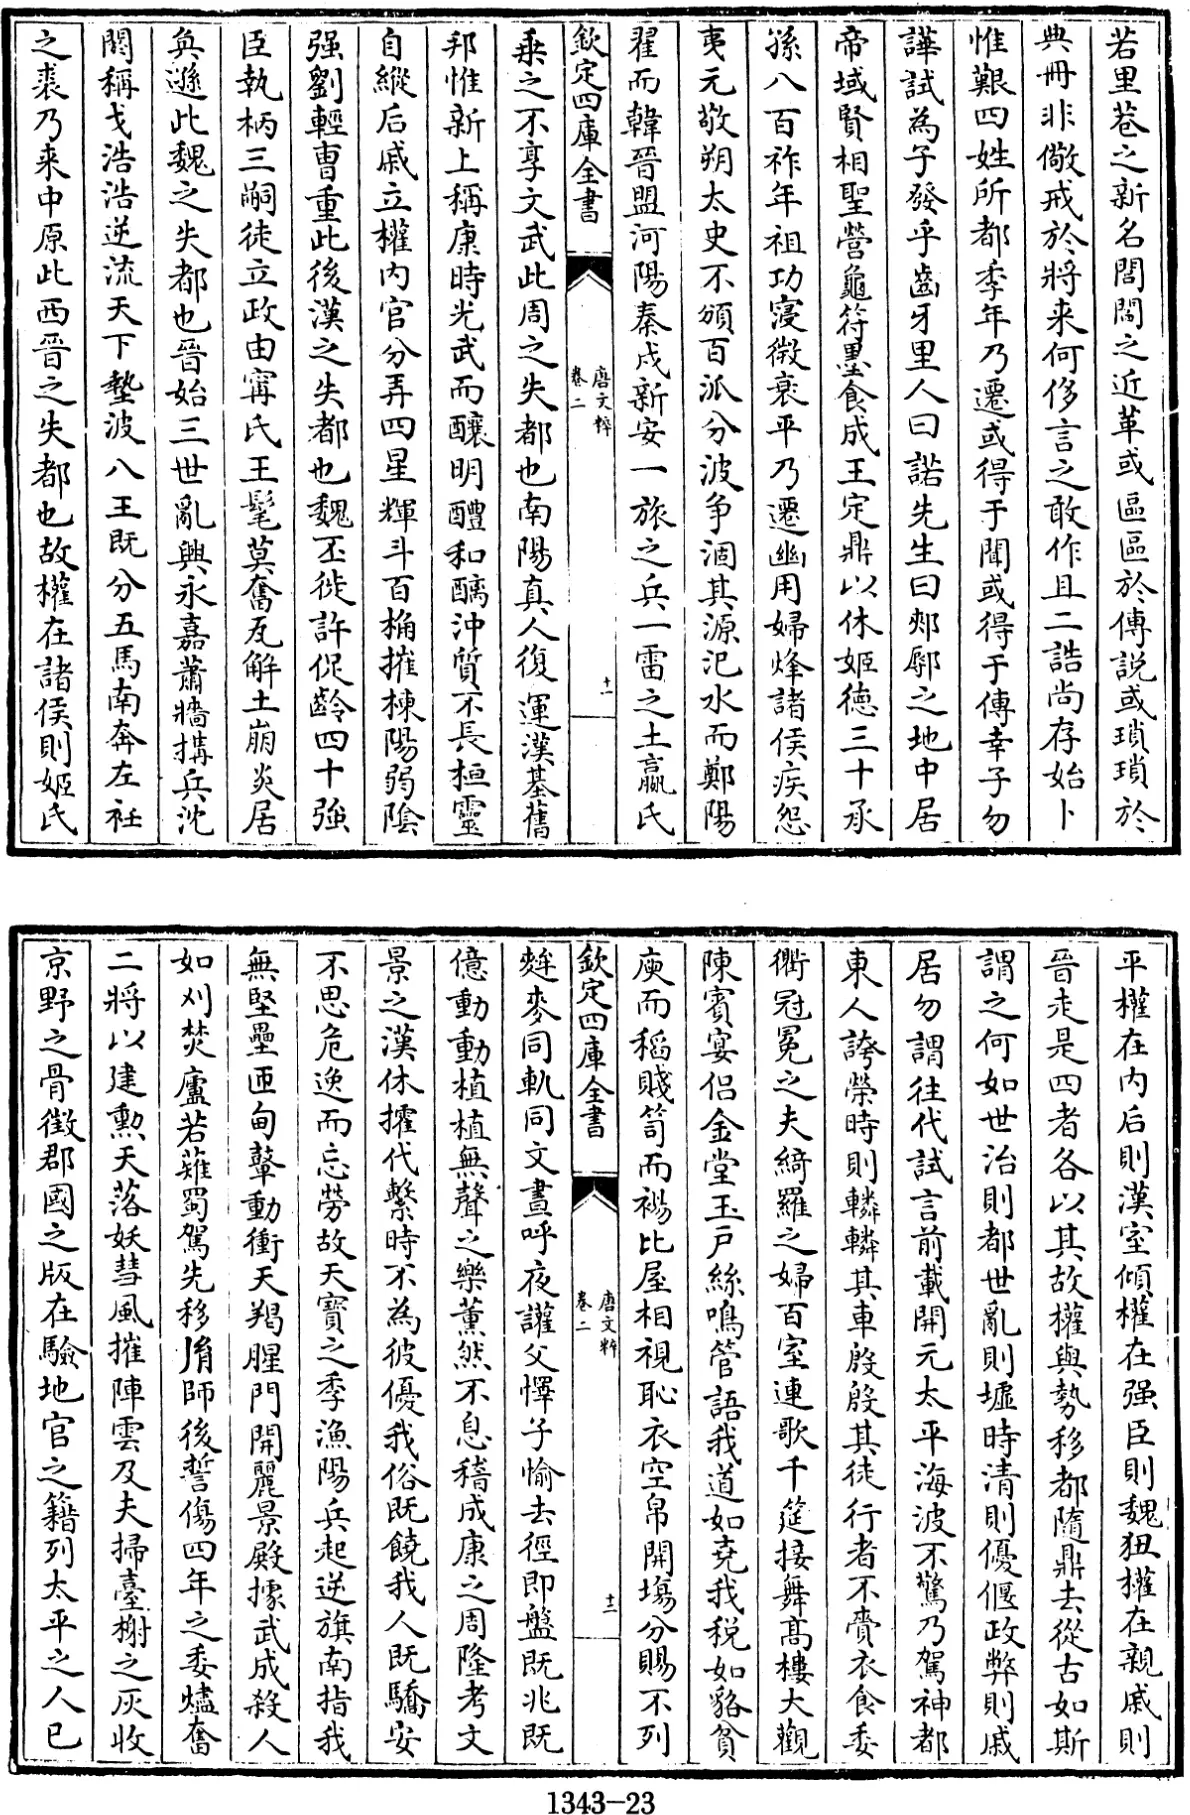 若里巷之新名閭閻之近革或區區於傳說或瑣瑣於
典冊非儆戒於將来何侈言之敢作且二誥尚存始卜
惟艱四姓所都季年乃遷或得于聞或得于傳幸子勿
譁試為子發乎齒牙里人曰諾先生曰郟鄏之地中居
帝域賢相聖營龜符墨食成王定鼎以休姬德三十承
孫八百祚年祖功寖微衰平乃遷幽用婦烽諸侯疾怨
夷元敬朔太史不頒百泒分波爭涸其源汜水而鄭陽
翟而韓晉盟河陽秦戍新安一旅之兵一雷之土嬴氏
欽定四庫全書
唐文粹
卷二
十一
乗之不享文武此周之失都也南陽真人復運漢基舊
邦惟新上稱康時光武而釀明醴和醨沖質不長桓靈
自縱后戚立權内官分弄四星輝斗百桷摧棟陽弱陰
强劉輕曺重此後漢之失都也魏丕徙許促齡四十強
臣執柄三嗣徒立政由寗氏王髦莫奮瓦解土崩炎居
奐遜此魏之失都也晉始三世亂興永嘉蕭牆搆兵沈
閼稱戈浩浩逆流天下墊波八王既分五馬南奔左袵
之裘乃来中原此西晉之失都也故權在諸侯則姬氏
平權在内后則漢室傾權在强臣則魏狃權在親戚則
晉走是四者各以其故權與勢移都隨鼎去從古如斯
謂之何如世治則都世亂則墟時清則優偃政弊則戚
居勿謂往代試言前載開元太平海波不驚乃駕神都
東人誇榮時則轔轔其車殷殷其徒行者不賷衣食委
衢冠冕之夫綺羅之婦百室連歌千筵接舞髙樓大觀
陳賓宴侣金堂玉戸絲鳴管語我道如堯我税如貉貧
庾而稻賤笥而裼比屋相視恥衣空帛開塲分賜不列
欽定四庫全書
唐文粹
卷二
十二
麰麥同軌同文晝呼夜讙父懌子愉去徑即盤既兆既
億動動植植無聲之樂薫然不息稽成康之周隆考文
景之漢休攉代繫時不為彼優我俗既饒我人既驕安
不思危逸而忘勞故天寳之季漁陽兵起逆旗南指我
無堅壘匝甸鼙動衝天羯腥門開麗景殿據武成殺人
如刈焚廬若薙蜀駕先移胷師後誓傷四年之委燼奮
二將以建勲天落妖彗風摧陣雲及夫掃臺榭之灰收
京野之骨徴郡國之版在驗地官之籍列太平之人已
1343-23